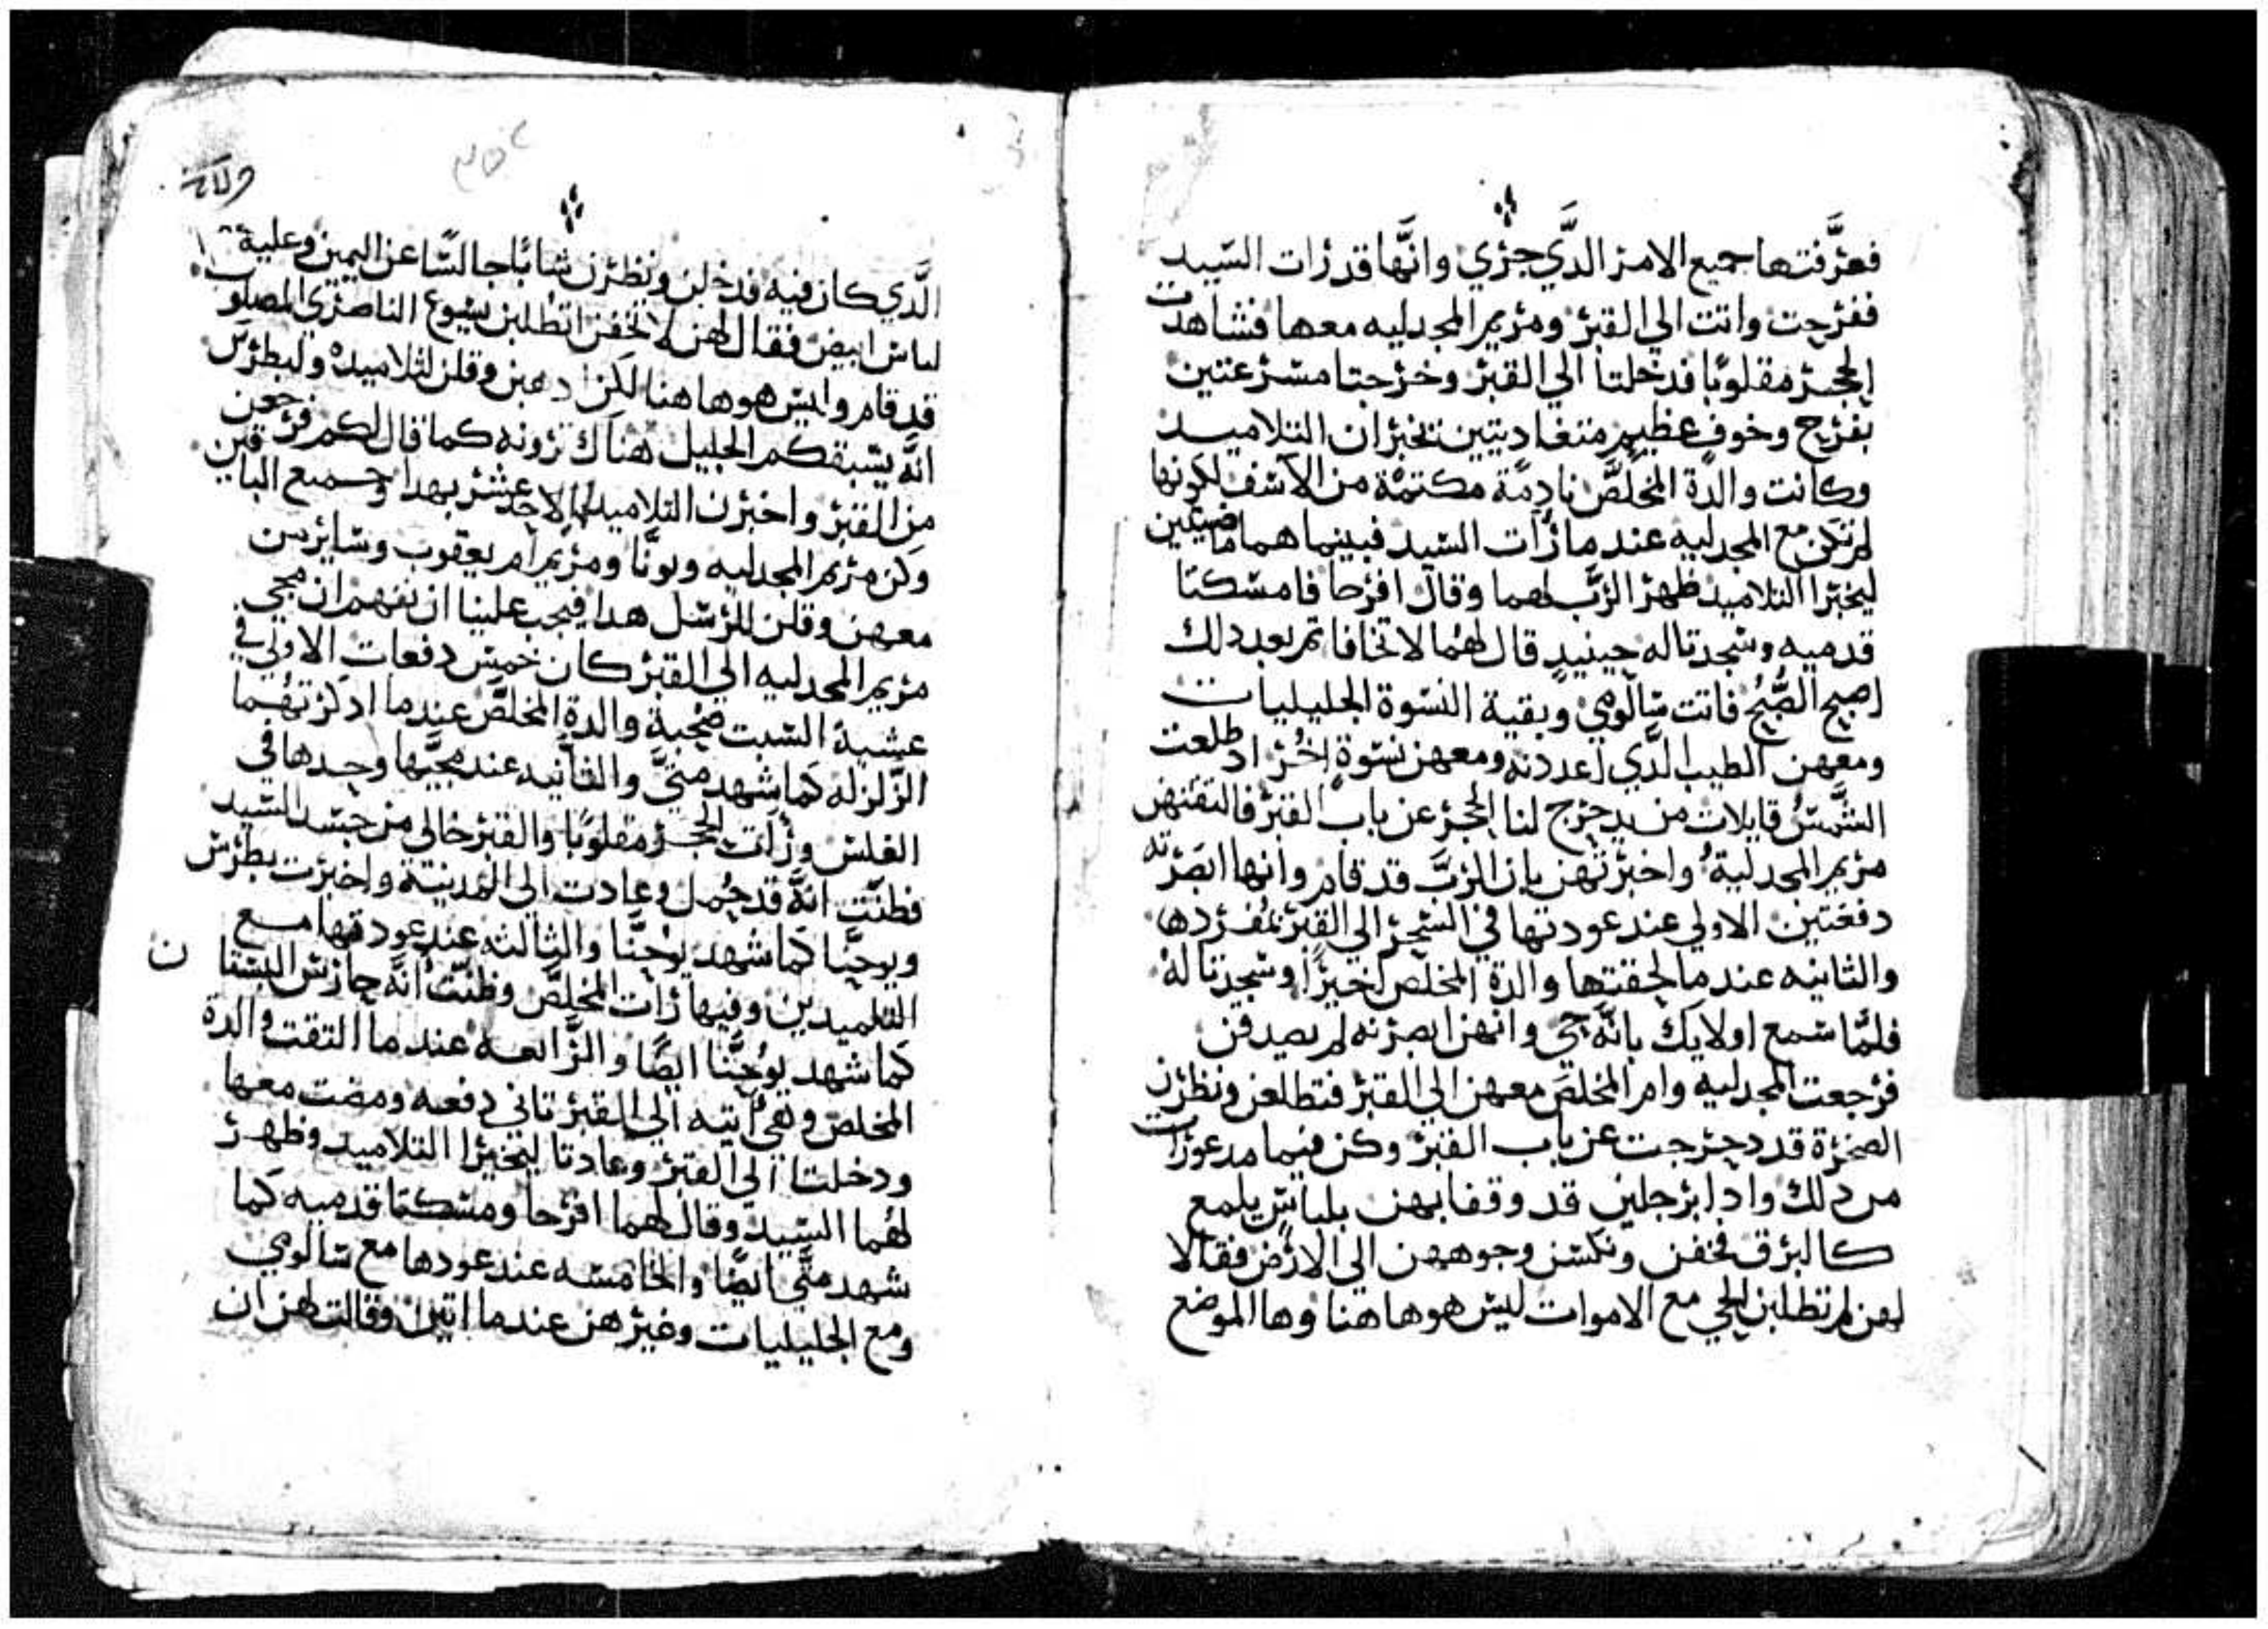 فعرَّفتها جميع الامر الدَّي جري وانَّها قد رات السَّيد
ففرحت واتت الي القبر ومريم المجدليه معها فشاهدت
الحجر مقلوبًا فدخلتا الي القبر وخرجتا مسرعتين
بفرح وخوفٍ عظيم متغاديتين تخبران التلاميد
وكانت والدة المخلّص نادمًة مكتمًة من الاسف لكونها
لم تكن مع المجدليه عند ما رات السيد فبينما هما ماضيتين
ليخبرا التلاميد ظهر الرَّب لهما وقال افرحا فامسكتا
قدميه وسجدتا له حينيدٍ قال لهما لا تخافا تم بعد دلك
اصبح الصُّبح فاتت سالومي وبقية النسوة الجليليات
ومعهن الطيب الدَّي اعددنه ومعهن نسوةٍ اخُر اد طلعت
الشَّمسُ قايلات من يدحرج لنا الحجر عن باب القبر فالتقتهن
مريم المجدليةُ واخبرتهن بان الرَّبَّ قد قام وانها ابصرته
دفعتين الاولي عند عودتها في السَّحر الي القبر بمفردها
والتانيه عند ما لحقتها والدة المخلّص اخيرًا وسجدتا لهُ
فلمَّا سمع اولايك بانَّه حي وانهن ابصرنه لم يصدقن
فرجعت المجدليه وام المخلص معهن الي القبر فتطلعن ونظرن
الصخرة قد دحرجت عن باب القبر وكن فيما مدعورات
من دلك وادا برجلين قد وقفا بهن بلباسٍ يلمع
كالبرق فخفن ونكسن وجوههن الي الارض فقالا
لهن لم تطلبن الحي مع الاموات ليس هو هاهنا وها الموضع
الدَّي كان فيه فدخلن ونظرن شابًا جالسًا عن اليمين وعلية
لباس ابيض فقال لهن لا تخفن اتطلبن يسوع الناصري المصلوب
قد قام وليس هو هاهنا لكن ادهبن وقلن لتلاميده ولبطرس
انَّه يسبقكم الجليل هناك ترونه كما قال لكم فرجعن
من القبر واخبرن التلاميد الاحد عشر بهدا وجميع الباقين
وكن مريم المجدليه ويونَّا ومريم ام يعقوب وسايرمن
معهن وقلن للرسل هدا فيجب علينا ان نفهم ان مجي
مريم المجدليه الي القبر كان خمس دفعات الاولي في
عشية السبت صحبة والدة المخلّص عند ما ادركتهما
الزَّلزله كما شهد متيَّ والتَّانيه عند مجيَّها وحدها في
الغلس ورات الحجر مقلوبًا والقبر خالي من جسد السيد
فظنَّت انَّه قد حُمل وعادت الي المدينة واخبرت بطرس
ويوحنَّا كما شهد يوحنَّا والتالته عند عودتها مع
التلميدين وفيها رات المخلّص وظنَّت انَّه حارس البستان
كما شهد يوُحنَّا ايضًا والرَّابعه عند ما التقت والدة
المخلص وهي اتيه الي القبر تاني دفعه ومضت معها
ودخلتا الي القبر وعادتا ليخبرا التلاميد وظهر
لهُما السيد وقال لهما افرحا ومسكتا قدميه كما
شهد متَّي ايضًا والخامسه عند عودها مع سالومي
ومع الجليليات وغيرهن عند ما اتين وقالت لهن ان